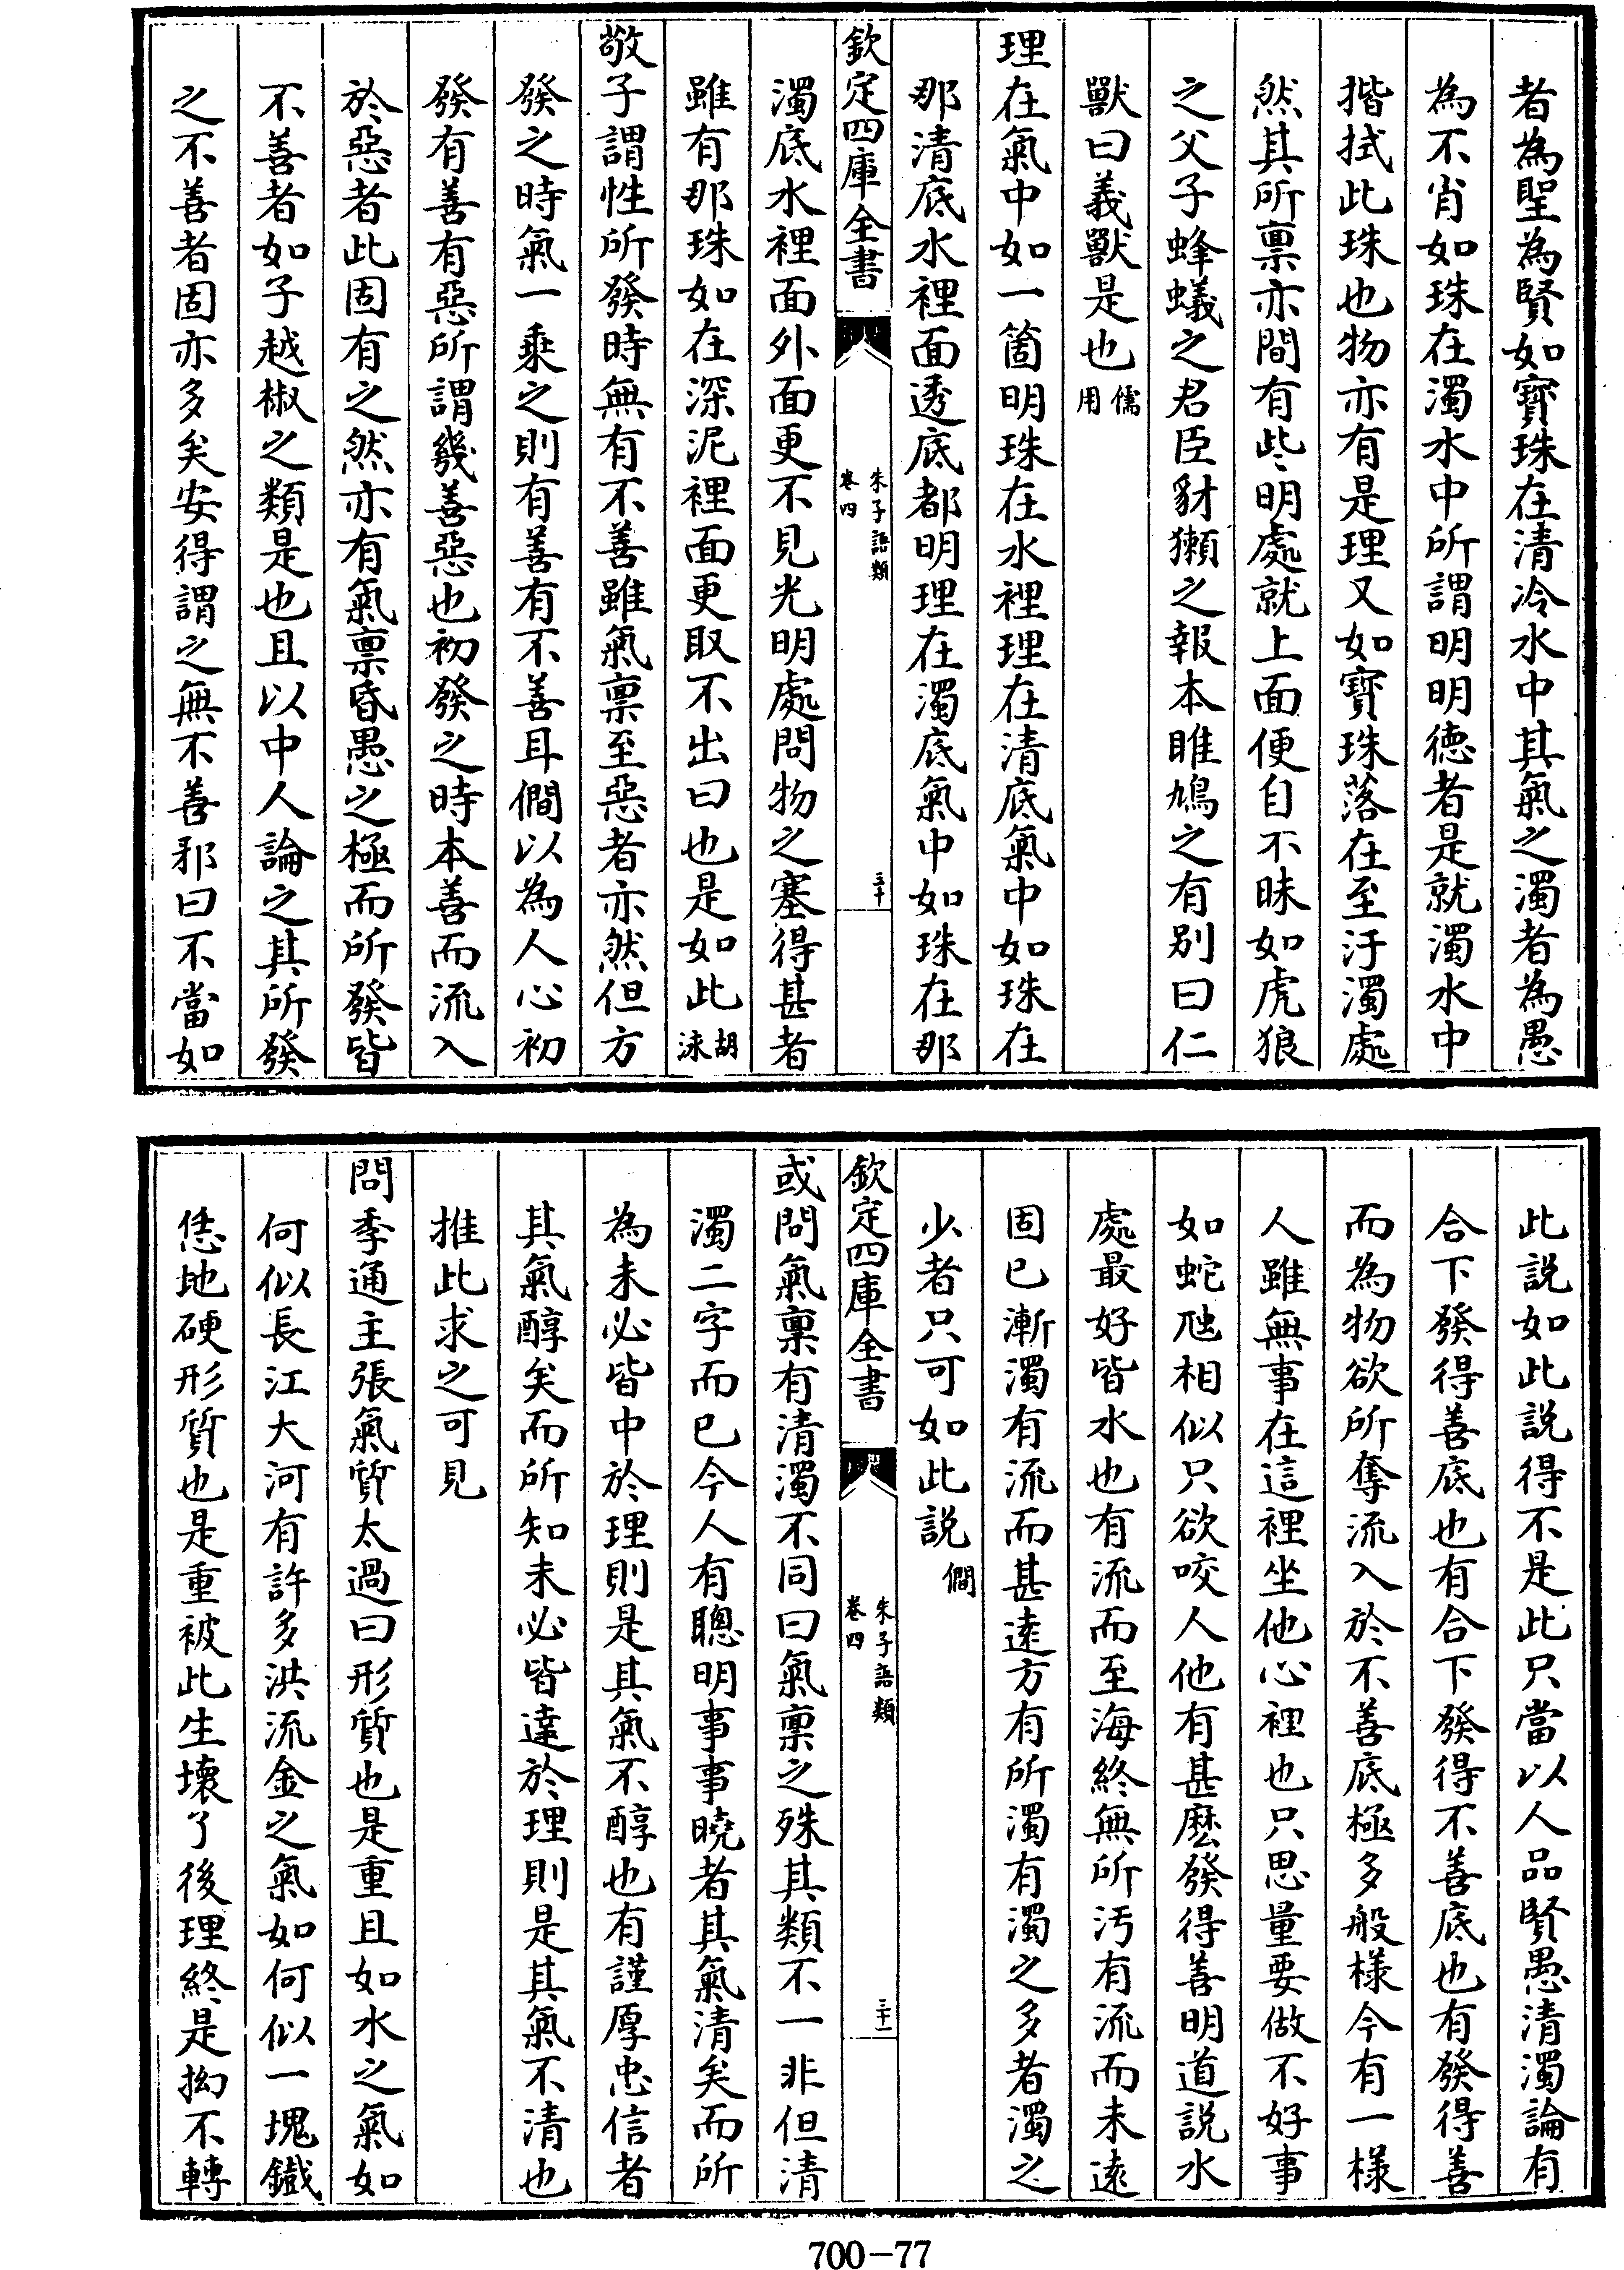 者為聖為賢如寶珠在清冷水中其氣之濁者為愚
為不肖如珠在濁水中所謂明明德者是就濁水中
揩拭此珠也物亦有是理又如寶珠落在至汙濁處
然其所禀亦間有些明處就上面便自不昧如虎狼
之父子蜂蟻之君臣豺獺之報本睢鳩之有别曰仁
獸曰義獸是也儒用
理在氣中如一箇明珠在水裡理在清底氣中如珠在
那清底水裡面透底都明理在濁底氣中如珠在那
欽定四庫全書 朱子語類 卷四 三十
濁底水裡面外面更不見光明處問物之塞得甚者
雖有那珠如在深泥裡面更取不出曰也是如此胡泳
敬子謂性所發時無有不善雖氣禀至惡者亦然但方
發之時氣一乘之則有善有不善耳僩以為人心初
發有善有惡所謂幾善惡也初發之時本善而流入
於惡者此固有之然亦有氣禀昏愚之極而所發皆
不善者如子越椒之類是也且以中人論之其所發
之不善者固亦多矣安得謂之無不善邪曰不當如
此説如此説得不是此只當以人品賢愚清濁論有
合下發得善底也有合下發得不善底也有發得善
而為物欲所奪流入於不善底極多般樣今有一樣
人雖無事在這裡坐他心裡也只思量要做不好事
如蛇虺相似只欲咬人他有甚麽發得善明道説水
處最好皆水也有流而至海終無所汚有流而未逺
固已漸濁有流而甚逺方有所濁有濁之多者濁之
少者只可如此説僩
欽定四庫全書 朱子語類 卷四 三十一
或問氣禀有清濁不同曰氣禀之殊其類不一非但清
濁二字而已今人有聰明事事曉者其氣清矣而所
為未必皆中於理則是其氣不醇也有謹厚忠信者
其氣醇矣而所知未必皆達於理則是其氣不清也
推此求之可見
問季通主張氣質太過曰形質也是重且如水之氣如
何似長江大河有許多洪流金之氣如何似一塊鐵
恁地硬形質也是重被此生壞了後理終是拗不轉
700-77